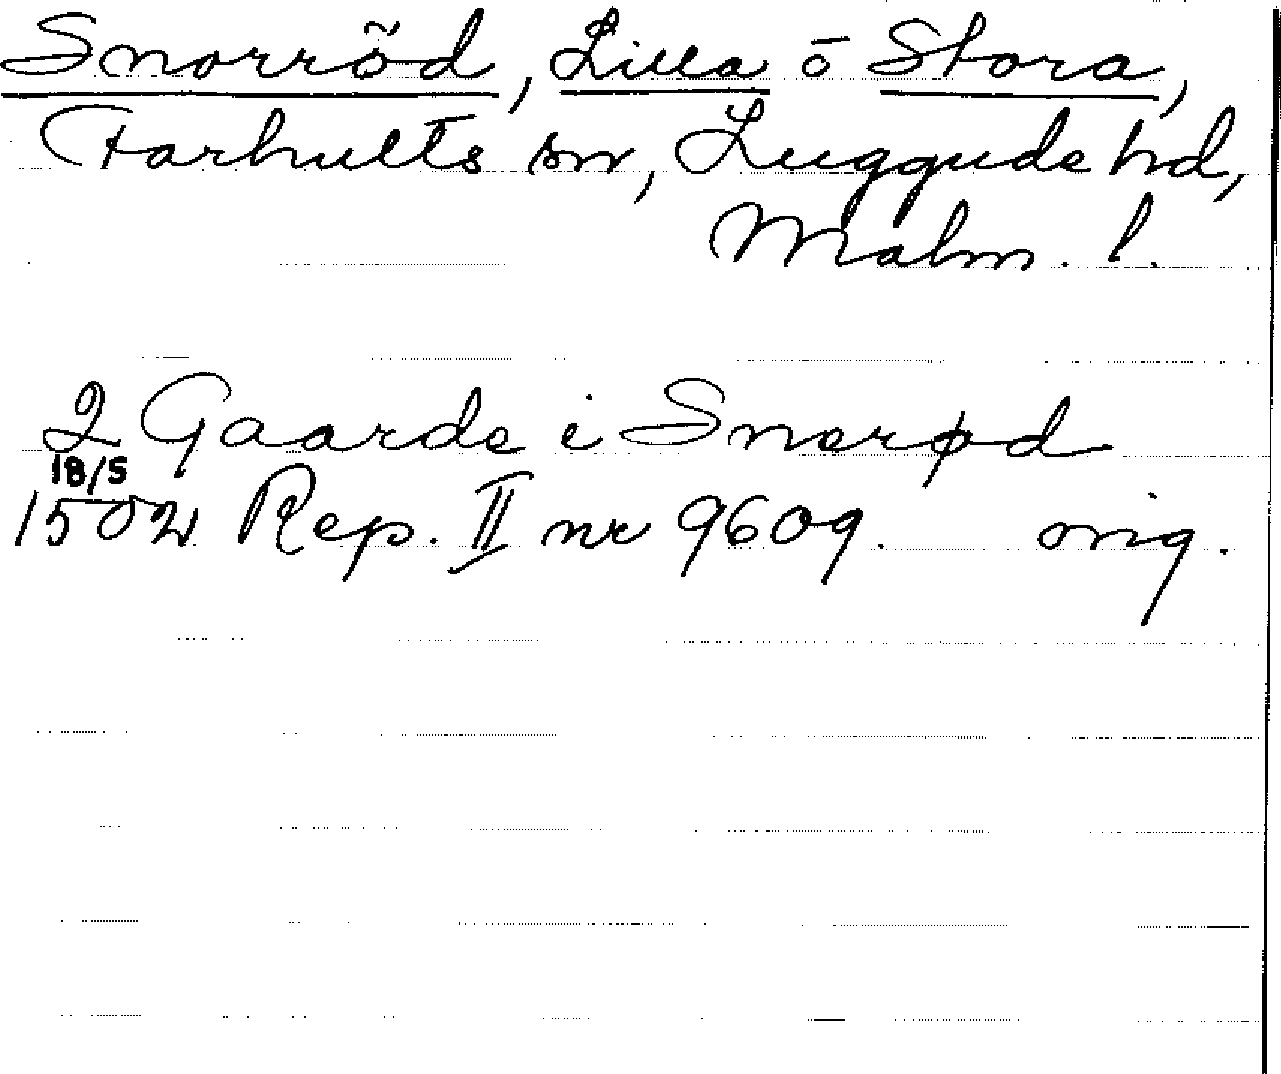 Snorröd, Lilla o Stora,
Farhults sn, Luggude hd,
Malm. l.
2 Gaarde i Snerød
18/5
1502 Rep. II nr 9609. orig.